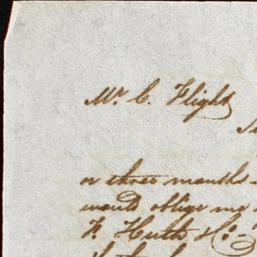 Mr. C. Flight
or three months
would oblige me
F. Huth & Co.